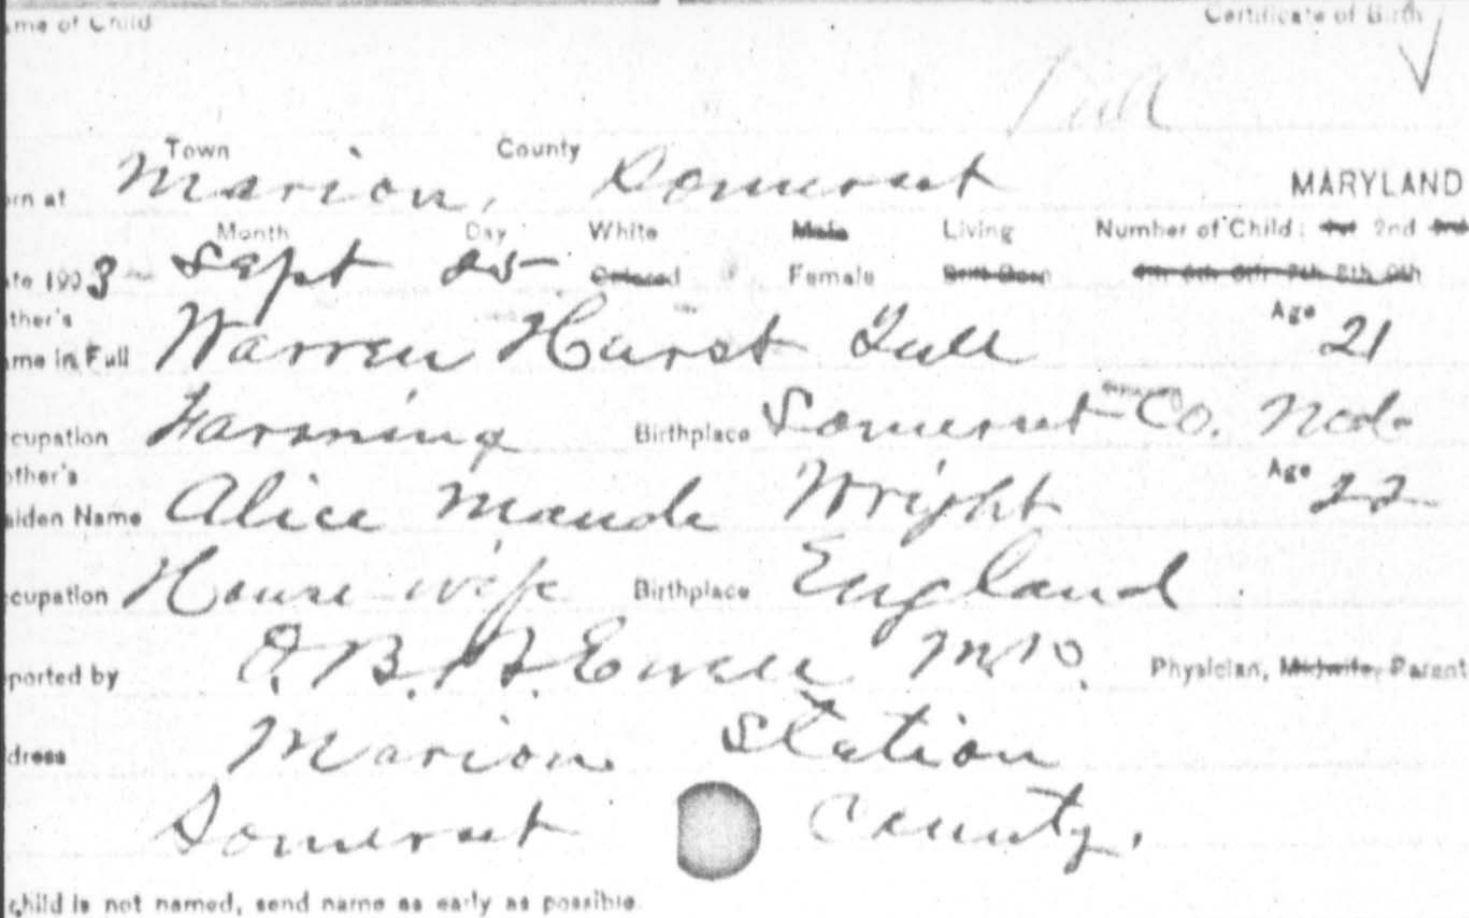 me of Child Certificate of Birth
Tull
Town County
rn at Marion, Somerset MARYLAND
Month Day White Male Living Number of Child: 1st 2nd 3rd
te 1903 Sept 25 Colored Female Still Born 4th 5th 6th 7th 8th 9th
ther's Age
me in Full Warren Hurst Tull 21
cupation Farming Birthplace Somerset Co. Md.
other's Age
aiden Name Alice Maude Wright 22
ccupation House wife Birthplace England
ported by M.D. Physician, Midwife, Parent
dress Marion Station
Somerset County.
child is not named, send name as early as possible.